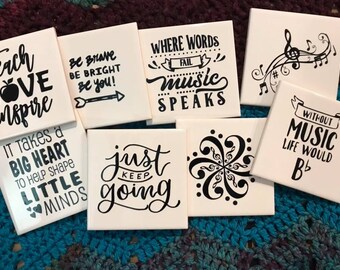 Teach
LOVE
inspire
BE BRAVE
BE BRIGHT
BE YOU!
WHERE WORDS
FAIL
music
SPEAKS
IT TAKES A
BIG HEART
TO HELP SHAPE
LITTLE
MINDS
just
KEEP
going
WITHOUT
MUSIC
LIFE WOULD
B♭